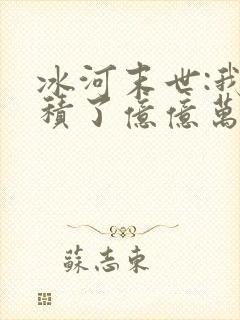 冰河末世:我
積了億億萬
蘇志東